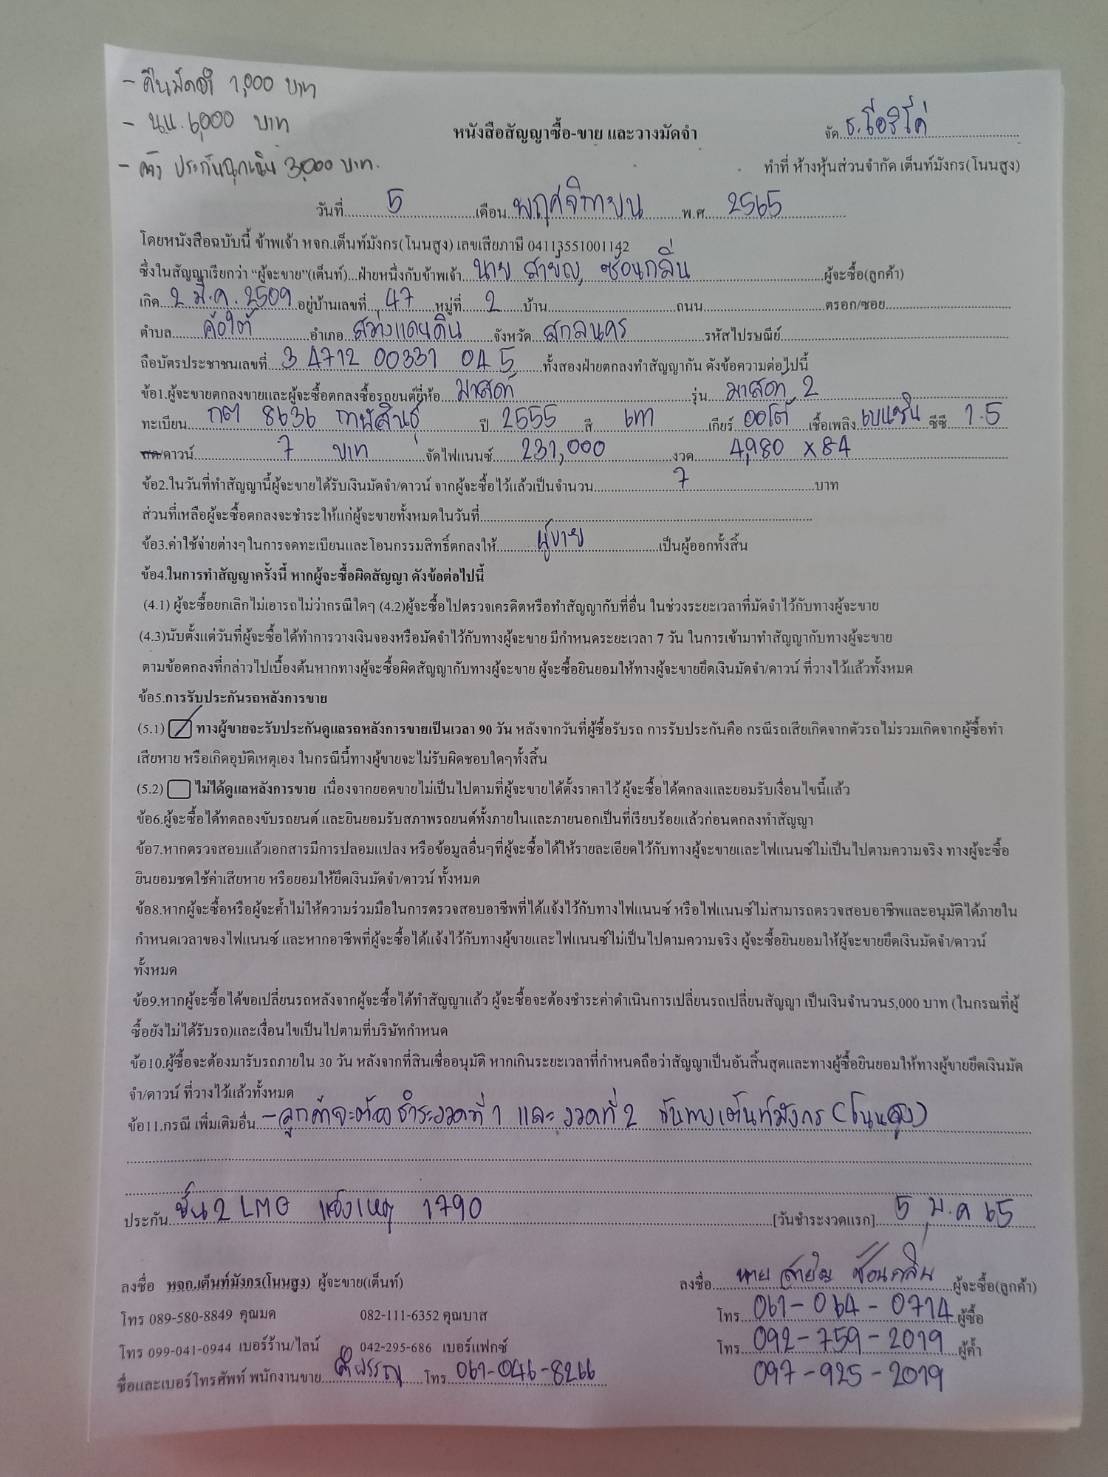 - คืนมัดจำ 1,000 บาท
- นน. 6,000 บาท
- ค้าง ประกันฉุกเฉิน 3,000 บาท.
หนังสือสัญญาซื้อ-ขาย และวางมัดจำ
จัด ธ.โอริโค่
ทำที่ ห้างหุ้นส่วนจำกัด เต็นท์มังกร(โนนสูง)
วันที่ 5 เดือน พฤศจิกายน พ.ศ. 2565
โดยหนังสือฉบับนี้ ข้าพเจ้า หจก.เต็นท์มังกร(โนนสูง) เลขเสียภาษี 04113551001142
ซึ่งในสัญญาเรียกว่า "ผู้จะขาย"(เต็นท์)...ฝ่ายหนึ่งกับข้าพเจ้า นาย สายัญ ซ้อนกลิ่น ผู้จะซื้อ(ลูกค้า)
เกิด 2 มี.ค. 2509 อยู่บ้านเลขที่ 47 หมู่ที่ 2 บ้าน ถนน ตรอก/ซอย
ตำบล ค้อใต้ อำเภอ สว่างแดนดิน จังหวัด สกลนคร รหัสไปรษณีย์
ถือบัตรประชาชนเลขที่ 3 4712 00331 04 5 ทั้งสองฝ่ายตกลงทำสัญญากัน ดังข้อความต่อไปนี้
ข้อ1.ผู้จะขายตกลงขายและผู้จะซื้อตกลงซื้อรถยนต์ยี่ห้อ มาสด้า รุ่น มาสด้า 2
ทะเบียน กต 8636 กาฬสินธุ์ ปี 2555 สี เทา เกียร์ ออโต้ เชื้อเพลิง เบนซิน ซีซี 1.5
ดาวน์ 7 บาท จัดไฟแนนซ์ 231,000 งวด 4,980 x 84
ข้อ2.ในวันที่ทำสัญญานี้ผู้จะขายได้รับเงินมัดจำ/ดาวน์ จากผู้จะซื้อไว้แล้วเป็นจำนวน 7 บาท
ส่วนที่เหลือผู้จะซื้อตกลงจะชำระให้แก่ผู้จะขายทั้งหมดในวันที่
ข้อ3.ค่าใช้จ่ายต่างๆในการจดทะเบียนและโอนกรรมสิทธิ์ตกลงให้ ผู้ขาย เป็นผู้ออกทั้งสิ้น
ข้อ4.ในการทำสัญญาครั้งนี้ หากผู้จะซื้อผิดสัญญา ดังข้อต่อไปนี้
(4.1) ผู้จะซื้อยกเลิกไม่เอารถไม่ว่ากรณีใดๆ (4.2)ผู้จะซื้อไปตรวจเครดิตหรือทำสัญญากับที่อื่น ในช่วงระยะเวลาที่มัดจำไว้กับทางผู้จะขาย
(4.3)นับตั้งแต่วันที่ผู้จะซื้อได้ทำการวางเงินจองหรือมัดจำไว้กับทางผู้จะขาย มีกำหนดระยะเวลา 7 วัน ในการเข้ามาทำสัญญากับทางผู้จะขาย
ตามข้อตกลงที่กล่าวไปเบื้องต้นหากทางผู้จะซื้อผิดสัญญากับทางผู้จะขาย ผู้จะซื้อยินยอมให้ทางผู้จะขายยึดเงินมัดจำ/ดาวน์ ที่วางไว้แล้วทั้งหมด
ข้อ5.การรับประกันรถหลังการขาย
(5.1) ทางผู้ขายจะรับประกันดูแลรถหลังการขายเป็นเวลา 90 วัน หลังจากวันที่ผู้ซื้อรับรถ การรับประกันคือ กรณีรถเสียเกิดจากตัวรถไม่รวมเกิดจากผู้ซื้อทำ
เสียหาย หรือเกิดอุบัติเหตุเอง ในกรณีนี้ทางผู้ขายจะไม่รับผิดชอบใดๆทั้งสิ้น
(5.2) ไม่ได้ดูแลหลังการขาย เนื่องจากยอดขายไม่เป็นไปตามที่ผู้จะขายได้ตั้งราคาไว้ ผู้จะซื้อได้ตกลงและยอมรับเงื่อนไขนี้แล้ว
ข้อ6.ผู้จะซื้อได้ทดลองขับรถยนต์ และยินยอมรับสภาพรถยนต์ทั้งภายในและภายนอกเป็นที่เรียบร้อยแล้วก่อนตกลงทำสัญญา
ข้อ7.หากตรวจสอบแล้วเอกสารมีการปลอมแปลง หรือข้อมูลอื่นๆที่ผู้จะซื้อได้ให้รายละเอียดไว้กับทางผู้จะขายและไฟแนนซ์ไม่เป็นไปตามความจริง ทางผู้จะซื้อ
ยินยอมชดใช้ค่าเสียหาย หรือยอมให้ยึดเงินมัดจำ/ดาวน์ ทั้งหมด
ข้อ8.หากผู้จะซื้อหรือผู้จะค้ำไม่ให้ความร่วมมือในการตรวจสอบอาชีพที่ได้แจ้งไว้กับทางไฟแนนซ์ หรือไฟแนนซ์ไม่สามารถตรวจสอบอาชีพและอนุมัติได้ภายใน
กำหนดเวลาของไฟแนนซ์ และหากอาชีพที่ผู้จะซื้อได้แจ้งไว้กับทางผู้ขายและไฟแนนซ์ไม่เป็นไปตามความจริง ผู้จะซื้อยินยอมให้ผู้จะขายยึดเงินมัดจำ/ดาวน์
ทั้งหมด
ข้อ9.หากผู้จะซื้อได้ขอเปลี่ยนรถหลังจากผู้จะซื้อได้ทำสัญญาแล้ว ผู้จะซื้อจะต้องชำระค่าดำเนินการเปลี่ยนรถเปลี่ยนสัญญา เป็นเงินจำนวน5,000 บาท (ในกรณที่ผู้
ซื้อยังไม่ได้รับรถ)และเงื่อนไขเป็นไปตามที่บริษัทกำหนด
ข้อ10.ผู้ซื้อจะต้องมารับรถภายใน 30 วัน หลังจากที่สินเชื่ออนุมัติ หากเกินระยะเวลาที่กำหนดถือว่าสัญญาเป็นอันสิ้นสุดและทางผู้ซื้อยินยอมให้ทางผู้ขายยึดเงินมัด
จำ/ดาวน์ ที่วางไว้แล้วทั้งหมด
ข้อ11.กรณี เพิ่มเติมอื่น - ลูกค้าจะต้องชำระงวดที่ 1 และ งวดที่ 2 กับทางเต้นท์มังกร (โนนสูง)
ประกัน ชั้น 2 LMG แจ้งเหตุ 1790 [วันชำระงวดแรก] 5 ม.ค 65
ลงชื่อ หจก.เต็นท์มังกร(โนนสูง) ผู้จะขาย(เต็นท์) ลงชื่อ นาย สายัญ ซ้อนกลิ่น ผู้จะซื้อ(ลูกค้า)
โทร 089-580-8849 คุณมด 082-111-6352 คุณบาส โทร 061-064-0714 ผู้ซื้อ
โทร 099-041-0944 เบอร์ร้าน/ไลน์ 042-295-686 เบอร์แฟกซ์ โทร 092-759-2019 ผู้ค้ำ
ชื่อและเบอร์โทรศัพท์ พนักงานขาย โทร 061-046-8266 097-925-2019